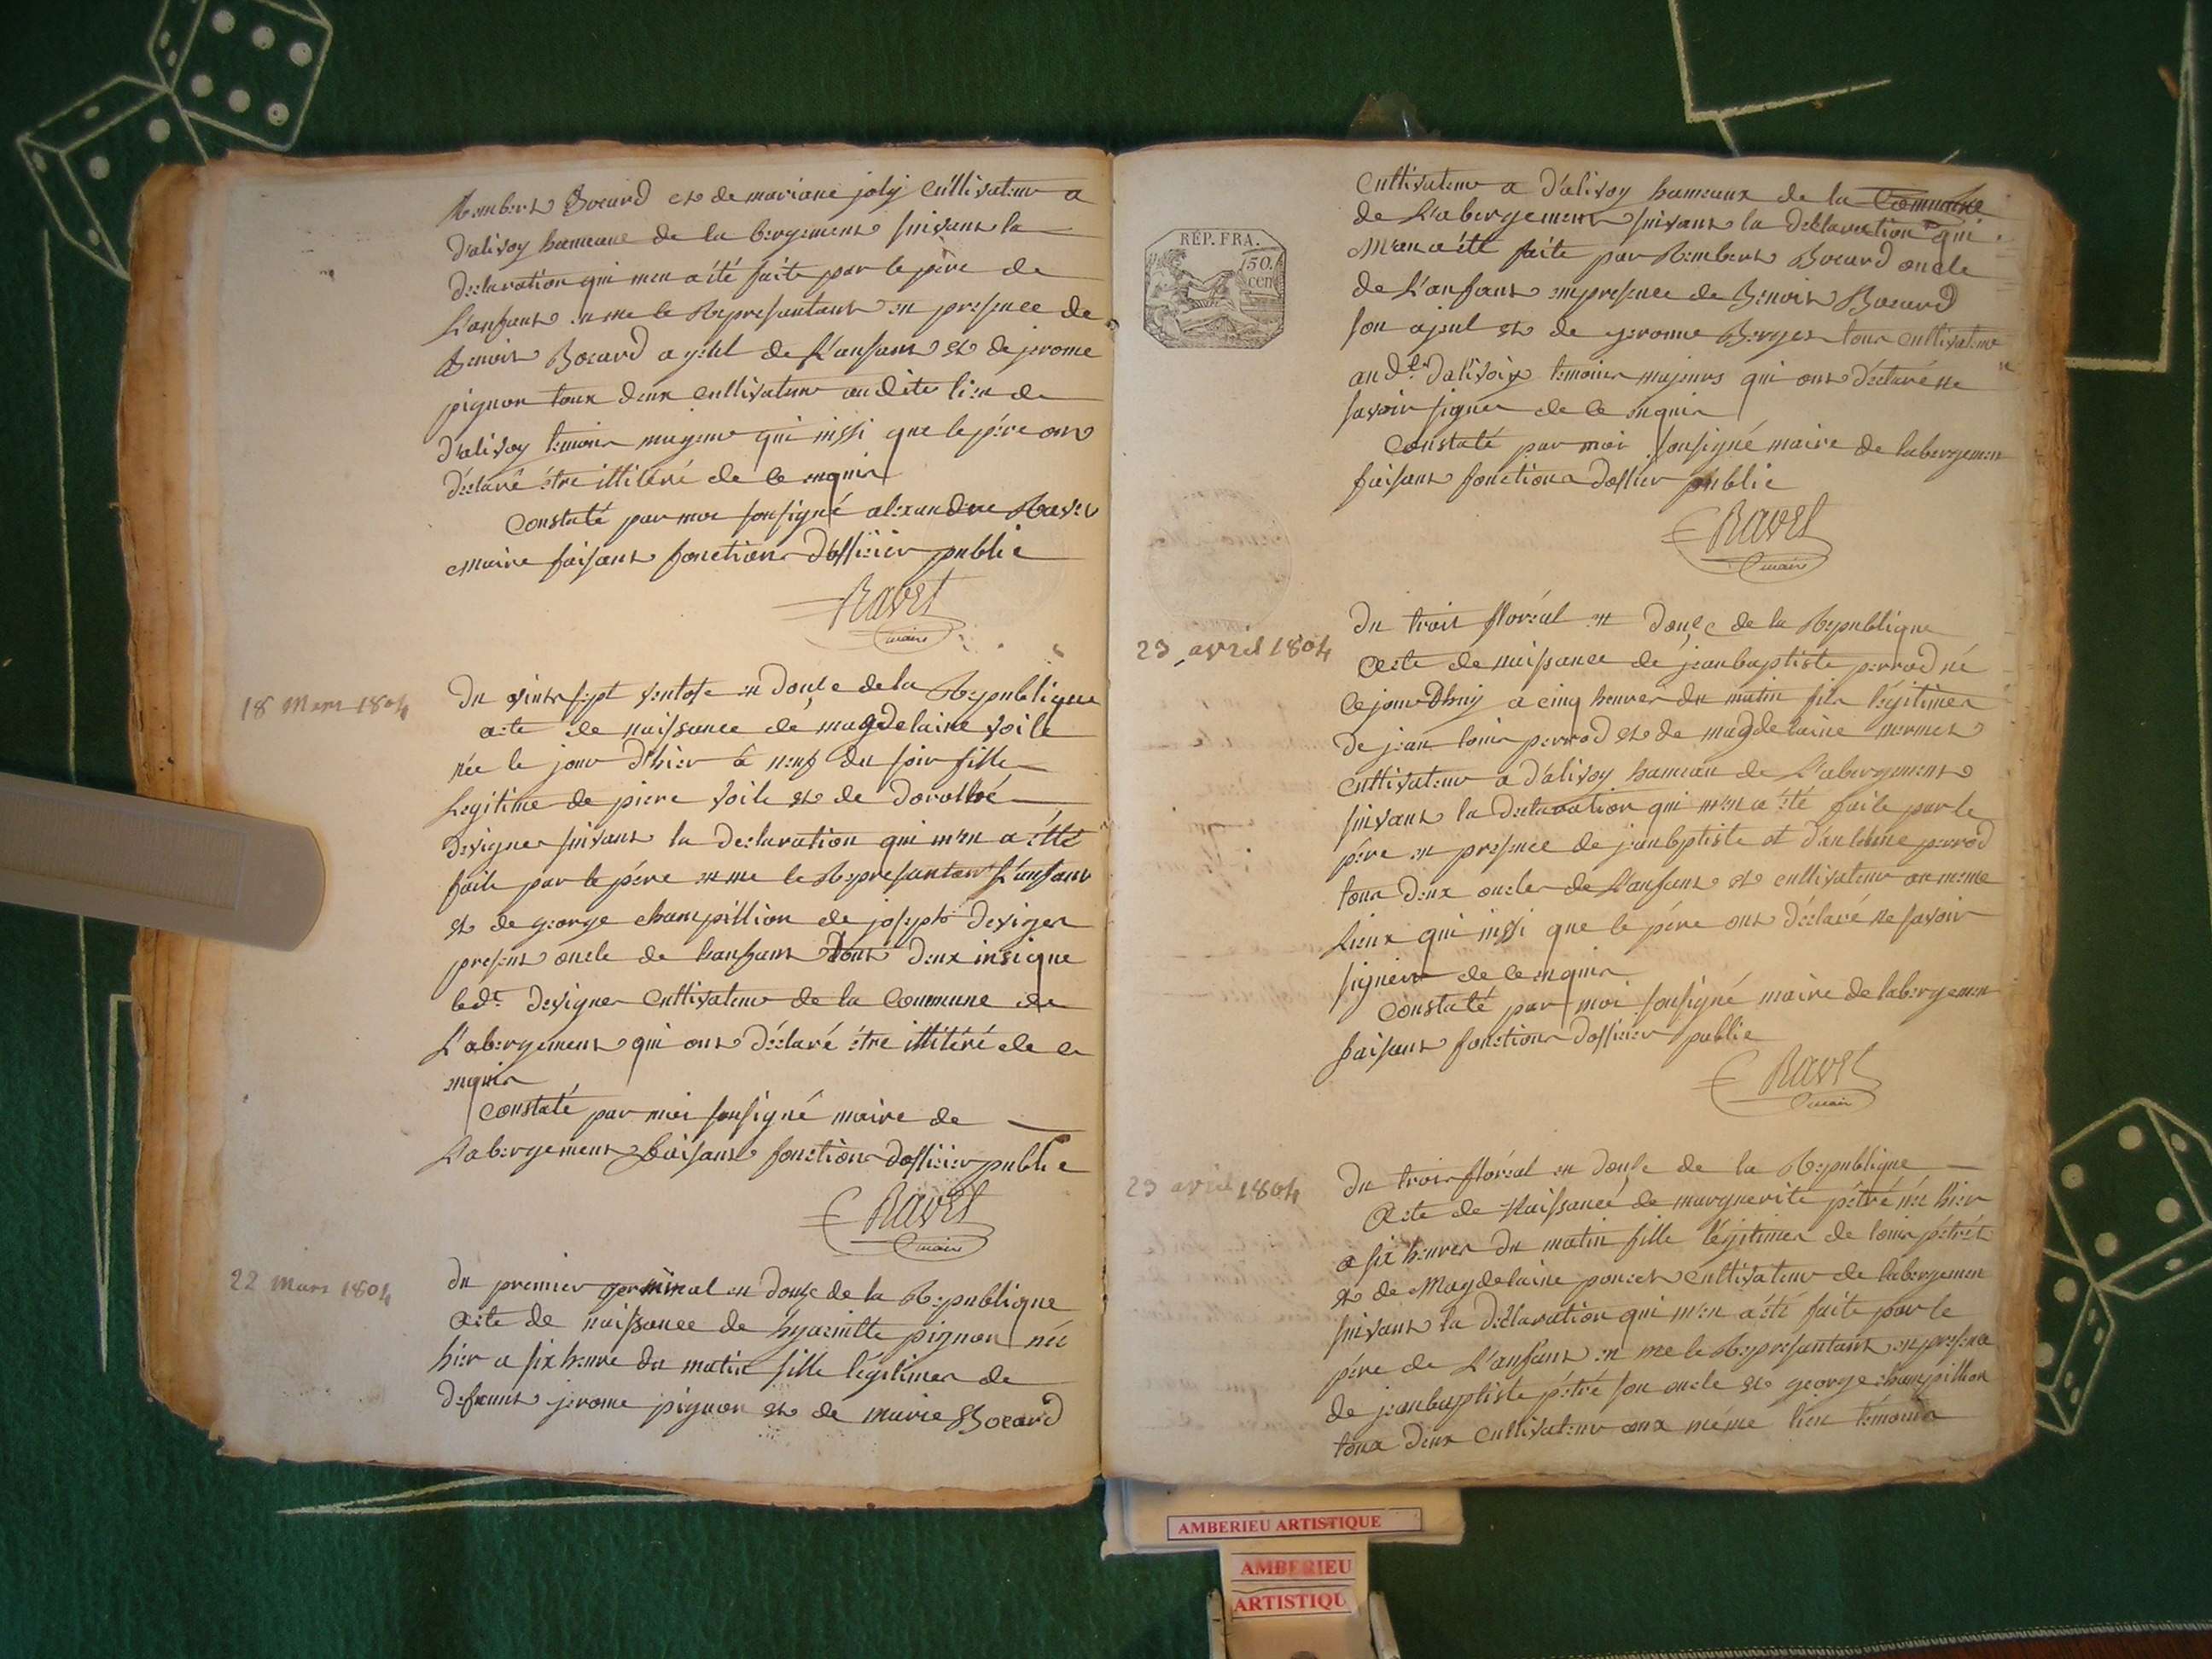 Rembert Bocard et de mariane joly cultivateur a
d'alivoy hameaux de la bergement suivant la
declaration qui men a été faite par le père de
L'anfant en me le Represantant en presence de
Benoit Bocard ayeul de L'anfant et de jerome
pignon toux deux cultivateur audite lieu de
d'alivoy temoins mageur qui insi que le père ont
déclaré étre illitéré de ce enquis
Constaté par moi sousigné alexandre Ravet
Maire faisant fonctions d'officier public
Ravet
maire
18 Mars 1804
du vint sept ventose an douze de la Republique
acte de naissance de magdelaine voile
née le jour d'hier à neuf du soir fille
Legitime de piere voile et de dorothé
devigne suivant la declaration qui m'en a étté
faite par le père en me le Represantant L'anfant
et de george champillion de joseph deviges
present oncle de l'anfant tout deux insigne
le dt devigne cultivateur de la Commune de
L'abergement qui ont déclaré étre illitéré de ce
enquis
Constaté par moi sousigné maire de
L'abergement faisant fonctions d'officier public
Ravet
maire
22 Mars 1804
du premier germinal an douze de la Republique
acte de naissance de hyacintte pignon née
hier a six heure du matin fille légitimes de
defeunt jerome pignon et de marie Bocard
RÉP. FRA.
50.
cen
cultivateur a d'alivoy hameaux de la Commune
de L'abergement suivant la déclaration qui
M'an a été faite par Rembert Bocard oncle
de L'anfant en presence de Benoit Bocard
son ajeul et de gerome Berger tous cultivateur
au dt d'alivoix temoins majeurs qui ont déclaré ne
savoir signer de ce enquis
Constaté par moi sousigné maire de labergement
faisant fonctions doffier public
Ravet
maire
23 avril 1804
du trois floréal an douze de la Republique
Acte de naissance de jeanbaptiste perrod né
ce jourdhuy a cinq heures du matin fils légitimes
de jean louis perrod et de magdelaine mermet
cultivateur a d'alivoy hameau de L'abergement
suivant la declaration qui m'en a été faite par le
père en presence de jeanbptiste et d'anthème perrod
tous deux oncles de L'anfant et cultivateur au meme
Lieux qui insi que le père ont déclaré ne savoir
signer de ce enquis
Constaté par moi sousigné maire de labergement
faisant fonctions d'officier public
Ravet
maire
23 avril 1804
du trois floréal an douze de la Republique
Acte de Naissance de marguerite pétré née hier
a six heures du matin fille légitimes de louis pétré
et de Magdelaine poncet cultivateur de labergement
suivant la déclaration qui m'en a été faite par le
père de L'anfant en me le Represantant en presence
de jeanbaptiste pétré son oncle et george champillion
toux deux cultivateur aux méme lieu témoins
AMBERIEU ARTISTIQUE
AMBERIEU
ARTISTIQU